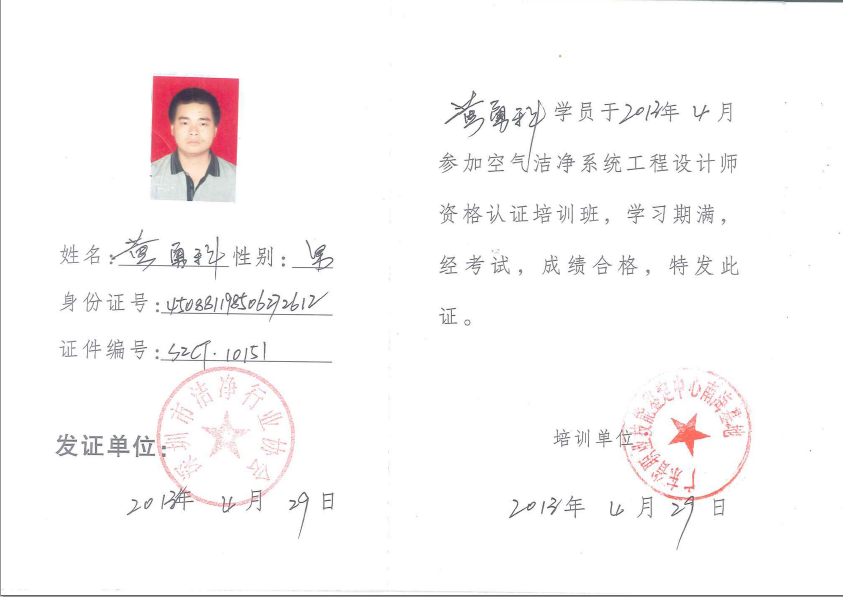 姓名：黄勇科 性别：男
身份证号：450881198506272612
证件编号：SZCJ·10151
深圳市洁净行业协会
发证单位：
2013年 4月 29日
黄勇科学员于2013年4月
参加空气洁净系统工程设计师
资格认证培训班，学习期满，
经考试，成绩合格，特发此
证。
广东省职业技能鉴定中心南海基地
培训单位
2013年 4月 29日